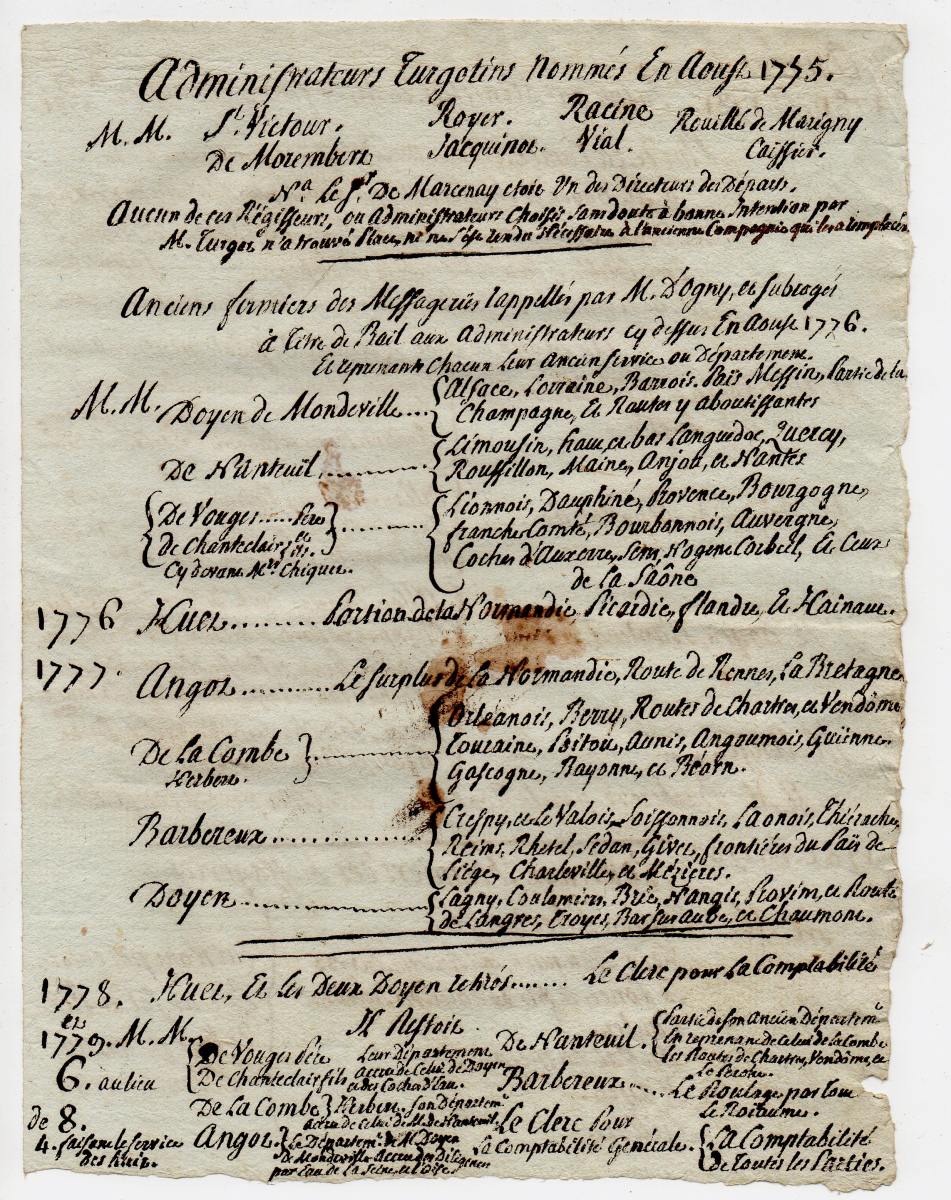 Administrateurs Turgotins Nommés En Aoust 1775.
M. M. St. Victour. Royer. Racine Rouillé de Marigny
De Morembert Jacquinot. Vial. Caissier.
Na. Le Sr. De Marcenay etoit Un des Directeurs des Départs.
Aucun de ces Régisseurs, ou Administrateurs Choisis sans doute à bonne Intention par
M. Turgot n'a trouvé Place, ni ne s'est rendu Nécessaire à l'ancienne Compagnie qui les a remplacés.
Anciens fermiers des Messageries rappellés par M. D'Ogny, et subrogés
à titre de Bail aux Administrateurs cy dessus En Aoust 1776.
Et reprenants Chacun Leur Ancien service ou Département.
M. M. Doyen de Mondeville.... Alsace, Lorraine, Barrois. Païs Messin, Partie de la
Champagne, Et Routes y aboutissantes
De Nanteuil........... Limousin, haut, et bas Languedoc, Quercy,
Roussillon, Maine, Anjou, et Nantes
De Vouges..... Pere
de Chanteclair et
Cy devant Mrs. Chiquet. Lionnois, Dauphiné, Provence, Bourgogne,
franche Comté, Bourbonnois, Auvergne,
Coches d'Auxerre, Sens, Nogent Corbeil, Et Ceux
de La Saône
1776 Huet........ Portion de la Normandie, Picardie, flandre, Et Hainaut.
1777. Angot.......... Le surplus de La Normandie, Route de Rennes, La Bretagne
De La Combe
Herbert. Orléanois, Berry, Routes de Chartres, et Vendôme
Touraine, Poitou, Aunis, Angoumois, Guïenne.
Gascogne, Bayonne, et Béarn.
Barbereux............. Crespy, et le Valois, Soissonnois, Laonois, Thiérache,
Reims, Rhetel, Sédan, Givet, frontiéres du Païs de
Liége, Charleville, et Mézières.
Doyen................ Lagny, Coulomiers, Brie, Nangis, Provins, et Route
de Langres, Troyes, Bar sur aube, et Chaumont.
1778. Huet, Et les Deux Doyen retirés....... Le Clerc pour La Comptabilité
et
1779. M. M. Il Restoit
6. au lieu
de 8.
4. faisant le service
des huit.
De Vouges Pére
De Chanteclair fils Leur Département
accru de Celui de Doyen
et des Coches d'Eau.
De La Combe Herbert. Son Départemt
accru de Celui de M. de Nanteuil.
Angot. Le Départemt. de M. Doyen
De Mondeville accru des Diligences
par Eau de La Seine, et Oise.
De Nanteuil. Partie de son Ancien Départemt
En reprenant de Celui de La Combe
les Routes de Chartres, Vendôme, et
Le Perche.
Barbereux..... Le Roulage par tout
Le Roïaume.
Le Clerc Pour
La Comptabilité Générale. La Comptabilité
de Toutes les Parties.